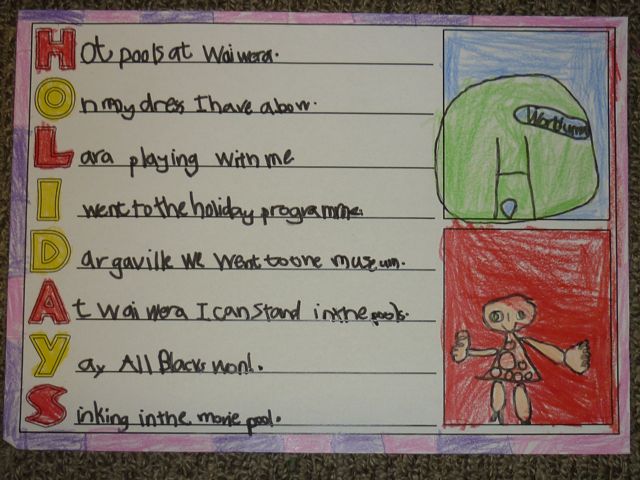 Hot pools at Waiwera.
On my dress I have a bow.
Lara playing with me
I went to the holiday programme.
Dargaville we went to the museum.
At Waiwera I can stand in the pools.
Yay All Blacks won!.
Sinking in the movie pool.